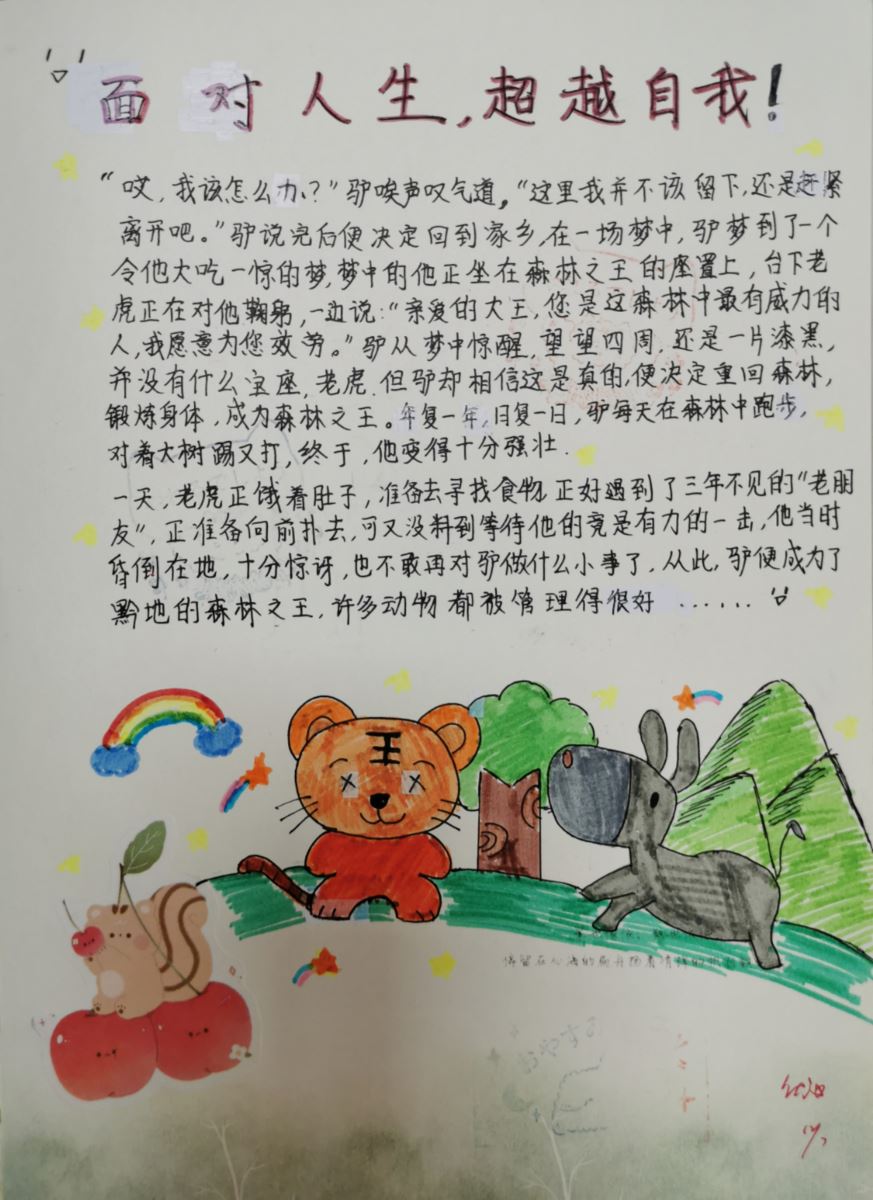 面对人生,超越自我!
“哎,我该怎么办?”驴唉声叹气道,“这里我并不该留下,还是赶紧
离开吧。”驴说完后便决定回到家乡,在一场梦中,驴梦到了一个
令他大吃一惊的梦,梦中的他正坐在森林之王的座置上,台下老
虎正在对他鞠躬,一边说:“亲爱的大王,您是这森林中最有威力的
人,我愿意为您效劳。”驴从梦中惊醒,望望四周,还是一片漆黑,
并没有什么宝座,老虎.但驴却相信这是真的,便决定重回森林,
锻炼身体,成为森林之王。年复一年,日复一日,驴每天在森林中跑步,
对着大树踢又打,终于,他变得十分强壮.
一天,老虎正饿着肚子,准备去寻找食物.正好遇到了三年不见的“老朋
友”,正准备向前扑去,可又没料到等待他的竟是有力的一击,他当时
昏倒在地,十分惊讶,也不敢再对驴做什么小事了,从此,驴便成为了
黔地的森林之王,许多动物都被管理得很好......
王